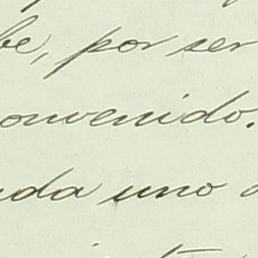 be, por ser
onvenido.
da uno